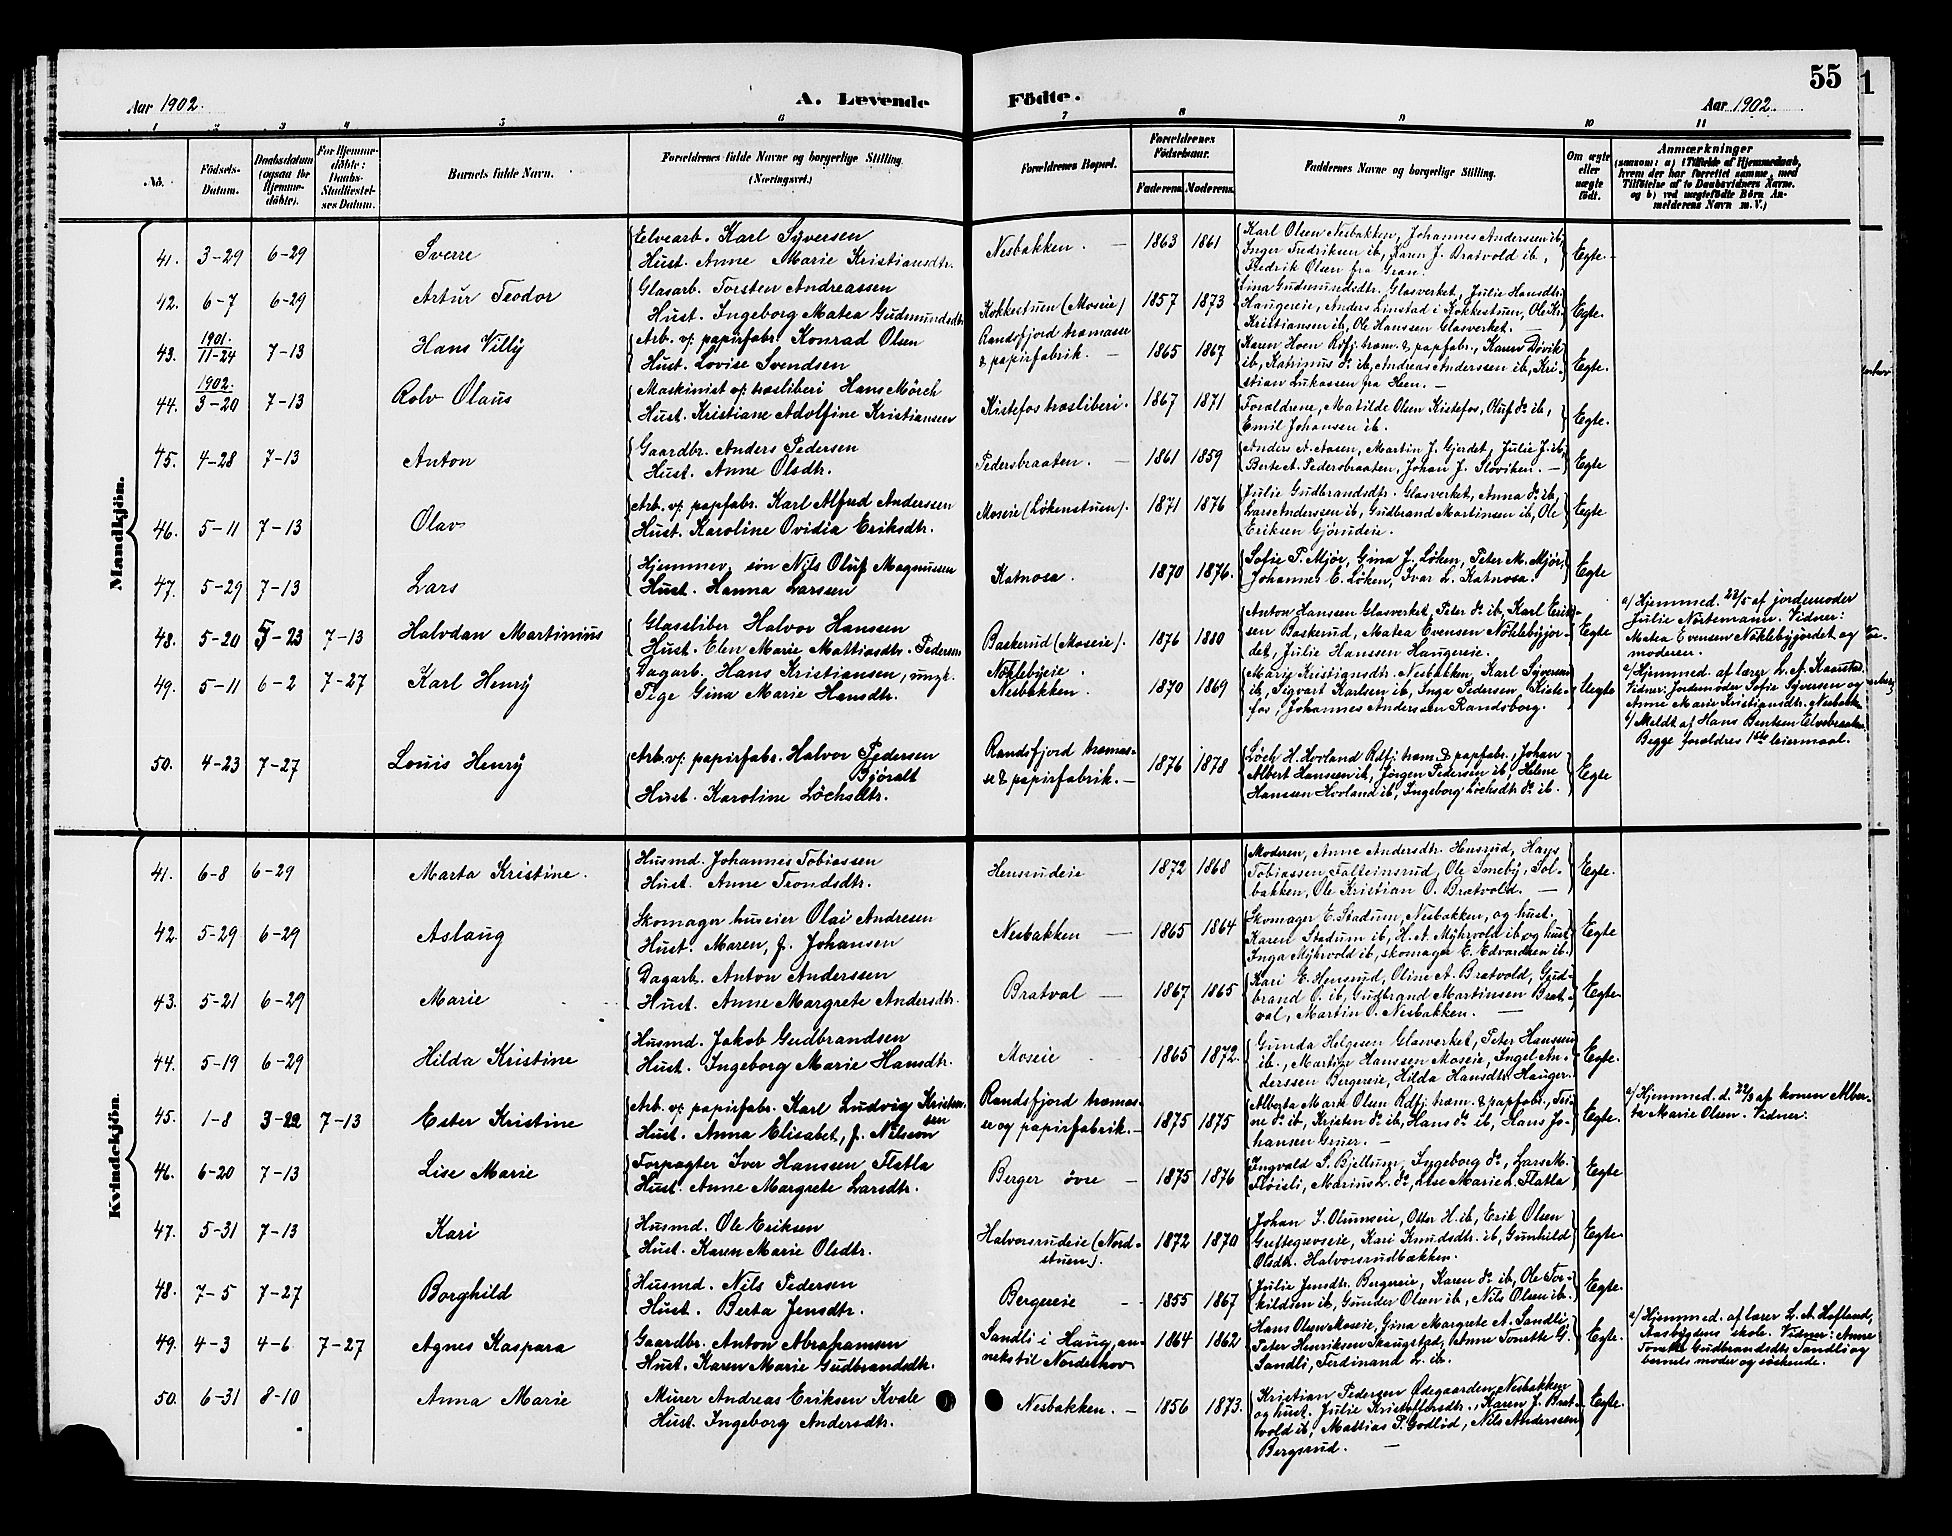 55
Aar 1902.
A. Levende Födte.
Aar 1902.
1 2 3 4 5 6 7 8 9 10 11
No.
Födsels-Datum.
Daabsdatum (ogsaa for Hjemme-döbte).
For Hjemme-döbte: Daabs-Stadfæstel-ses Datum.
Barnets fulde Navn.
Forældrenes fulde Navne og borgerlige Stilling. (Næringsvei.)
Forældrenes Bopæl.
Forældrenes Födselsaar.
Faderens. Moderens.
Faddernes Navne og borgerlige Stilling.
Om ægte eller uægte födt.
Anmærkninger
(saasom: a) i Tilfælde af Hjemmedaab, hvem der har forrettet samme, med Tilföielse af to Daabsvidners Navne. og b) ved uægtefödte Börn An-melderens Navn m. V.)
Mandkjön.
41. 3-29 6-29 Sverre
Elvearb. Karl Syversen
Hust. Anne Marie Kristiansdtr.
Nesbakken. — 1863 1861
Karl Olsen Nesbakken, Johannes Andersen ib,
Inger Fredriksen ib, Karen J. Bratvold ib,
Fredrik Olsen fra Gran.
Egte.
42. 6-7 6-29 Artur Teodor
Glasarb. Torsten Andreassen
Hust. Ingeborg Matea Gudmundsdtr
Kokkestuen (Moseie) 1857 1873
Lina Gudmundsdtr. Glasverket, Julie Hansdtr
Haugereie, Anders Linstad i Kokkestuen, Ole Kr.
Kristiansen ib, Ole Hanssen Glasverket. —
Egte.
43. 1901. 11-24 7-13 Hans Villy
Arb. v/ papirfabr. Konrad Olsen
Hust. Lovise Svendsen
Randsfjord træmasse
& papirfabrik. — 1865 1867
Karen Hoen Rdfj. træm. & papfabr., Karen Dövik
ib, Katrinus do ib, Andreas Anderssen ib, Kri-
stian Lukassen fra Heen. —
Egte.
44. 1902. 3-20 7-13 Rolv Olaus
Maskinist v/ træsliberi Hans Mörch
Hust. Kristiane Adolfine Kristiansen
Kistefos træsliberi. 1867 1871
Forældrene, Matilde Olsen Kistefos, Oluf do ib,
Emil Johansen ib.
Egte.
45. 4-28 7-13 Anton
Gaardbr. Anders Pedersen
Hust. Anne Olsdtr.
Pedersbraaten. — 1861 1859
Anders A. Aasen, Martin J. Gjerdet, Julie J. ib,
Berte A. Pedersbraaten, Johan J. Sloviken. —
Egte
46. 5-11 7-13 Olav
Arb. v/ papfabr. Karl Alfred Anderssen
Hust. Karoline Ovidia Eriksdtr.
Moseie (Løkenstuen). 1871 1876
Julie Gudbrandsdtr. Glasverket, Anna do ib,
Lars Anderssen ib, Gudbrand Martinsen ib, Ole
Eriksen Gjörudeie.
Egte
47. 5-29 7-13 Lars
Hjemmev. søn Nils Oluf Magnussen
Hust. Hanna Larssen
Katnosa. 1870 1876.
Sofie P. Mjør, Gina J. Løken, Peter M. Mjør,
Johannes E. Løken, Ivar L. Katnosa.
Egte
48. 5-20 5-23 7-13 Halvdan Martinius
Glassliber Halvor Hanssen
Hust. Elen Marie Mattiasdtr. Pedersen
Baskerud (Moseie). 1876 1880
Anton Hanssen Glasverket, Peter do ib, Karl Erik-
sen Baskerud, Matea Evensen Nöklebygjor-
det, Julie Hanssen Haugereie.
Egte
a/ Hjemmed. 23/5 af jordemoder
Julie Nürtemann. Vidner:
Matea Evensen Nöklebygjordet og
moderen.
49. 5-11 6-2 7-27 Karl Henry
Dagarb. Hans Kristiansen, ungk.
Pige Gina Marie Hansdtr.
Nöklebyeie.
Nesbakken. 1870 1869
Marie Kristiansdtr. Nesbakken, Karl Syversen
ib, Sigvart Karlsen ib, Inga Pedersen Kiste-
fos, Johannes Anderssen Randsborg.
Uegte
a/ Hjemmed. af lærer L. A. Kaarstad.
Vidner: Jordemoder Sofie Syversen og
Anne Marie Kristiansdtr. Nesbakk.
b/ Meldt af Hans Bentsen Elvebraaten.
Begge foraldres 1ste leiermaal.
50. 4-23 7-27 Louis Henry
Arb. v/ papirfabr. Halvor Pedersen
Björalt
Hust. Karoline Løchsdtr.
Randsfjord træmas-
se & papirfabrik. — 1876 1878
Løch H. Hovland Rdfj. træm. & papfabr., Johan
Albert Hanssen ib, Jörgen Pedersen ib, Helene
Hanssen Hovland ib, Ingeborg Löchsdtr do ib.
Egte
Kvindekjön.
41. 6-8 6-29 Marta Kristine.
Husmd. Johannes Tobiassen
Hust. Anne Trondsdtr.
Hensrudeie 1872 1868
Moderen, Anne Andersdtr. Hensrud, Hans
Tobiassen Falteinsrud, Ole Smeby, Sol-
bakken, Ole Kristian O. Bratvold. —
Egte.
42. 5-29 6-29 Aslaug
Skomager huseier Olai Andresen
Hust. Maren, f. Johansen
Nesbakken — 1865 1864
Skomager E. Stadum, Nesbakken, og hust.
Karen Stadum ib, H. A. Myhrvold ib og hust
Inga Myhrvold ib, skomager E. Edvardsen ib.
Egte
43. 5-21 6-29 Marie
Dagarb. Anton Anderssen
Hust. Anne Margrete Andersdtr.
Bratval — 1867 1865
Kari E. Hensrud, Oline A. Bratvold, Gud-
brand O. ib, Gudbrand Martinsen Brat-
val, Martin O. Nesbakken. —
Egte.
44. 5-19 6-29 Hilda Kristine
Husmd. Jakob Gudbrandsen
Hust. Ingeborg Marie Hansdtr.
Moseie 1865 1872.
Gunda Helgesen Glasverket, Peter Hanssen
ib., Martin Hanssen Moseie, Ingel An-
derssen Bergereie, Hilda Hansdtr. Hauger.
Egte.
45. 1-8 3-22 7-13 Ester Kristine
Arb. v/ papirfabr. Karl Ludvig Kristen-
sen
Hust. Anna Elisabet, f. Nilsson
Randsfjord træmas-
se og papirfabrik. — 1875 1875
Alberta Marie Olsen Rdfj. træm. & papfabr., Tri-
ne do ib, Kristen do ib, Hans do ib, Hans Jo-
hansen Gruer. —
Egte.
a/ Hjemmed. d. 22/3 af konen Alber-
ta Marie Olsen. Vidner:
46. 6-20 7-13 Lise Marie
Forpagter Iver Hanssen Flatla
Hust. Anne Margrete Larsdtr.
Berger övre — 1875 1876
Ingvald S. Bjellum, Ingeborg do, Lars M.
Fløisli, Marius L. do, Lise Marie L. Flatla
Egte
47. 5-31 7-13 Kari
Husmd. Ole Eriksen
Hust. Karen Marie Olsdtr.
Halvorsrudeie (Nord-
stuen). 1872 1870
Johan I. Olumseie, Oster H. ib, Erik Olsen
Greftegrevseie, Kari Knudsdtr. ib, Gunhild
Olsdtr. Halvorsrudbakken.
Egte.
48. 7-5 7-27 Borghild
Husmd. Nils Pedersen
Hust. Berta Jensdtr.
Bergereie — 1855 1867
Julie Jensdtr. Bergereie, Karen do ib, Ole Tor-
kildsen ib, Gunder Olsen ib, Nils Olsen ib.
Egte.
49. 4-3 4-6 7-27 Agnes Kaspara
Gaardbr. Anton Abrahamsen
Hust. Karen Marie Gudbrandsdtr.
Sandli i Haug, an-
neks til Norderhov 1864 1862
Hans Olsen Moseie, Gina Margrete A. Sandli,
Peter Henriksen Skaugstad, Anne Tonette G.
Sandli, Ferdinand L. ib.
Egte.
a/ Hjemmed. af lærer L. A. Hofland,
Aasbygdens skole. Vidner: Anne
Tonette Gudbrandsdtr Sandli og
barnets moder og søskende.
50. 6-31 8-10 Anna Marie
Murer Andreas Eriksen Kvale
Hust. Ingeborg Andersdtr.
Nesbakken. — 1856 1873.
Kristian Pedersen Ødegaarden, Nesbakken
og hust. Julie Kristoffersdtr., Karen J. Brat-
vold ib, Mattias P. Godlid, Nils Anderssen
Bergsrud. —
Egte.